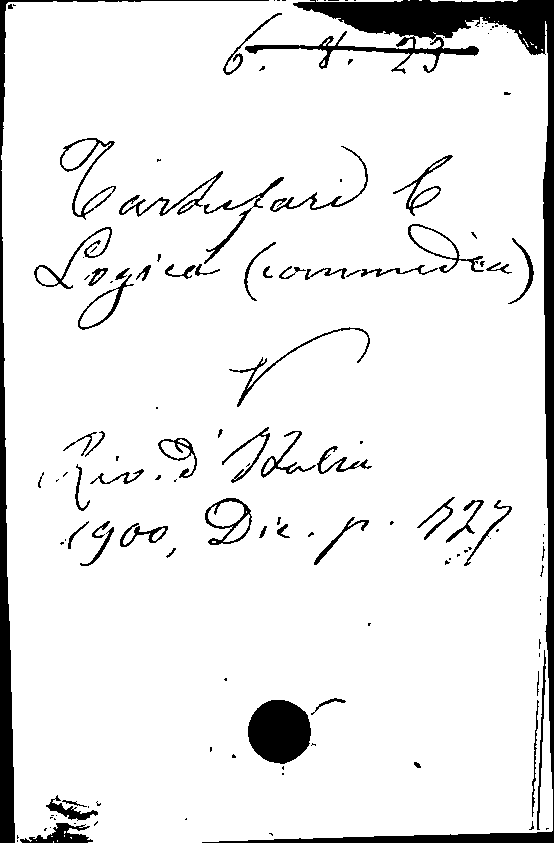 6. 8. 23
Tartufari C
Logica (commedia)
V
Riv. d'Italia
1900, Dic. p. 727